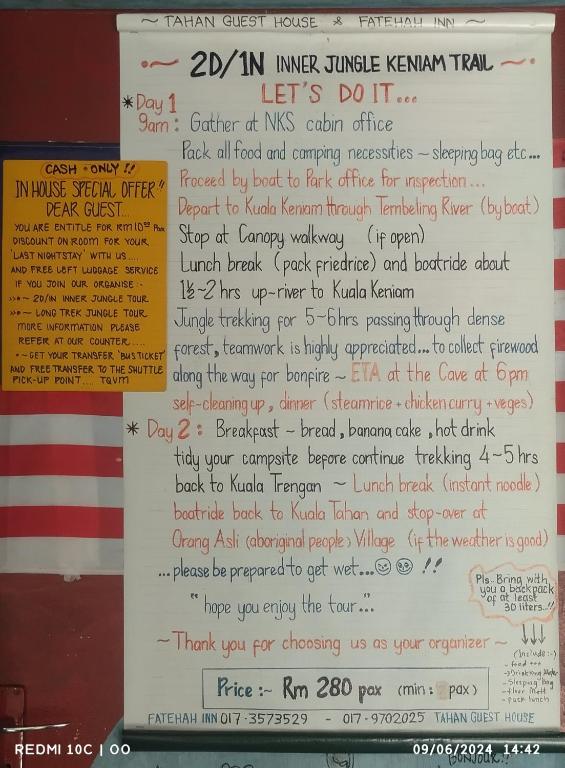 ~ TAHAN GUEST HOUSE & FATEHAH INN ~
2D/1N INNER JUNGLE KENIAM TRAIL
LET'S DO IT...
* Day 1
9am : Gather at NKS cabin office
Pack all food and camping necessities ~ sleeping bag etc...
Proceed by boat to Park office for inspection...
Depart to Kuala Keniam through Tembeling River (by boat)
Stop at Canopy walkway (if open)
Lunch break (pack friedrice) and boatride about
1½~2 hrs up-river to Kuala Keniam
Jungle trekking for 5~6hrs passing through dense
forest, teamwork is highly appreciated... to collect firewood
along the way for bonfire ~ ETA at the Cave at 6pm
self-cleaning up, dinner (steamrice + chicken curry + veges)
* Day 2 : Breakfast ~ bread, banana cake, hot drink
tidy your campsite before continue trekking 4~5hrs
back to Kuala Trengan ~ Lunch break (instant noodle)
boatride back to Kuala Tahan and stop-over at
Orang Asli (aboriginal people) Village (if the weather is good)
...please be prepared to get wet... !!
"hope you enjoy the tour..."
~Thank you for choosing us as your organizer~
Price :~ Rm 280 pax (min: pax)
FATEHAH INN 017-3573529 - 017-9702025 TAHAN GUEST HOUSE
CASH ONLY !!
IN HOUSE SPECIAL OFFER !!
DEAR GUEST...
YOU ARE ENTITLE FOR RM10
DISCOUNT ON ROOM FOR YOUR
'LAST NIGHTSTAY' WITH US....
AND FREE LEFT LUGGAGE SERVICE
IF YOU JOIN OUR ORGANISE :-
~ 2D/1N INNER JUNGLE TOUR
~ LONG TREK JUNGLE TOUR
MORE INFORMATION PLEASE
REFER AT OUR COUNTER....
~ GET YOUR TRANSFER 'BUS TICKET'
AND FREE TRANSFER TO THE SHUTTLE
PICK-UP POINT.... TQVM
Pls.. Bring with
you a backpack
of at least
30 liters..!!
(Include :-)
- food
- Drinking Water
- Sleeping bag
- floor matt
- pack lunch
BONJOUR!!
REDMI 10C | OO
09/06/2024 14:42